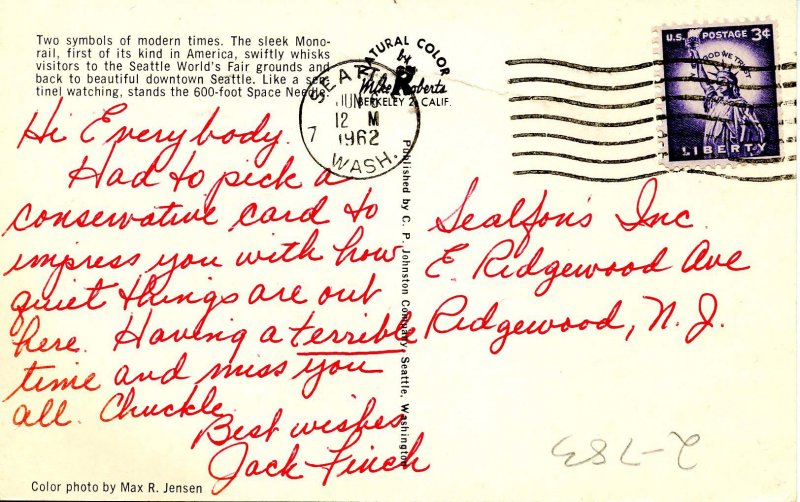 Two symbols of modern times. The sleek Mono-
rail, first of its kind in America, swiftly whisks
visitors to the Seattle World's Fair grounds and
back to beautiful downtown Seattle. Like a sen-
tinel watching, stands the 600-foot Space Needle.
NATURAL COLOR
by
Mike Roberts
BERKELEY 2, CALIF.
SEATTLE
JUN
12 M
7 1962
WASH.
U.S. POSTAGE 3¢
IN GOD WE TRUST
LIBERTY
Hi Everybody.
Had to pick a
conservative card to
impress you with how
quiet things are out
here. Having a terrible
time and miss you
all. Chuckle
Best wishes
Jack Finch
Published by C. P. Johnston Company, Seattle, Washington
Sealfon's Inc.
E Ridgewood Ave
Ridgewood, N. J.
2-783
Color photo by Max R. Jensen